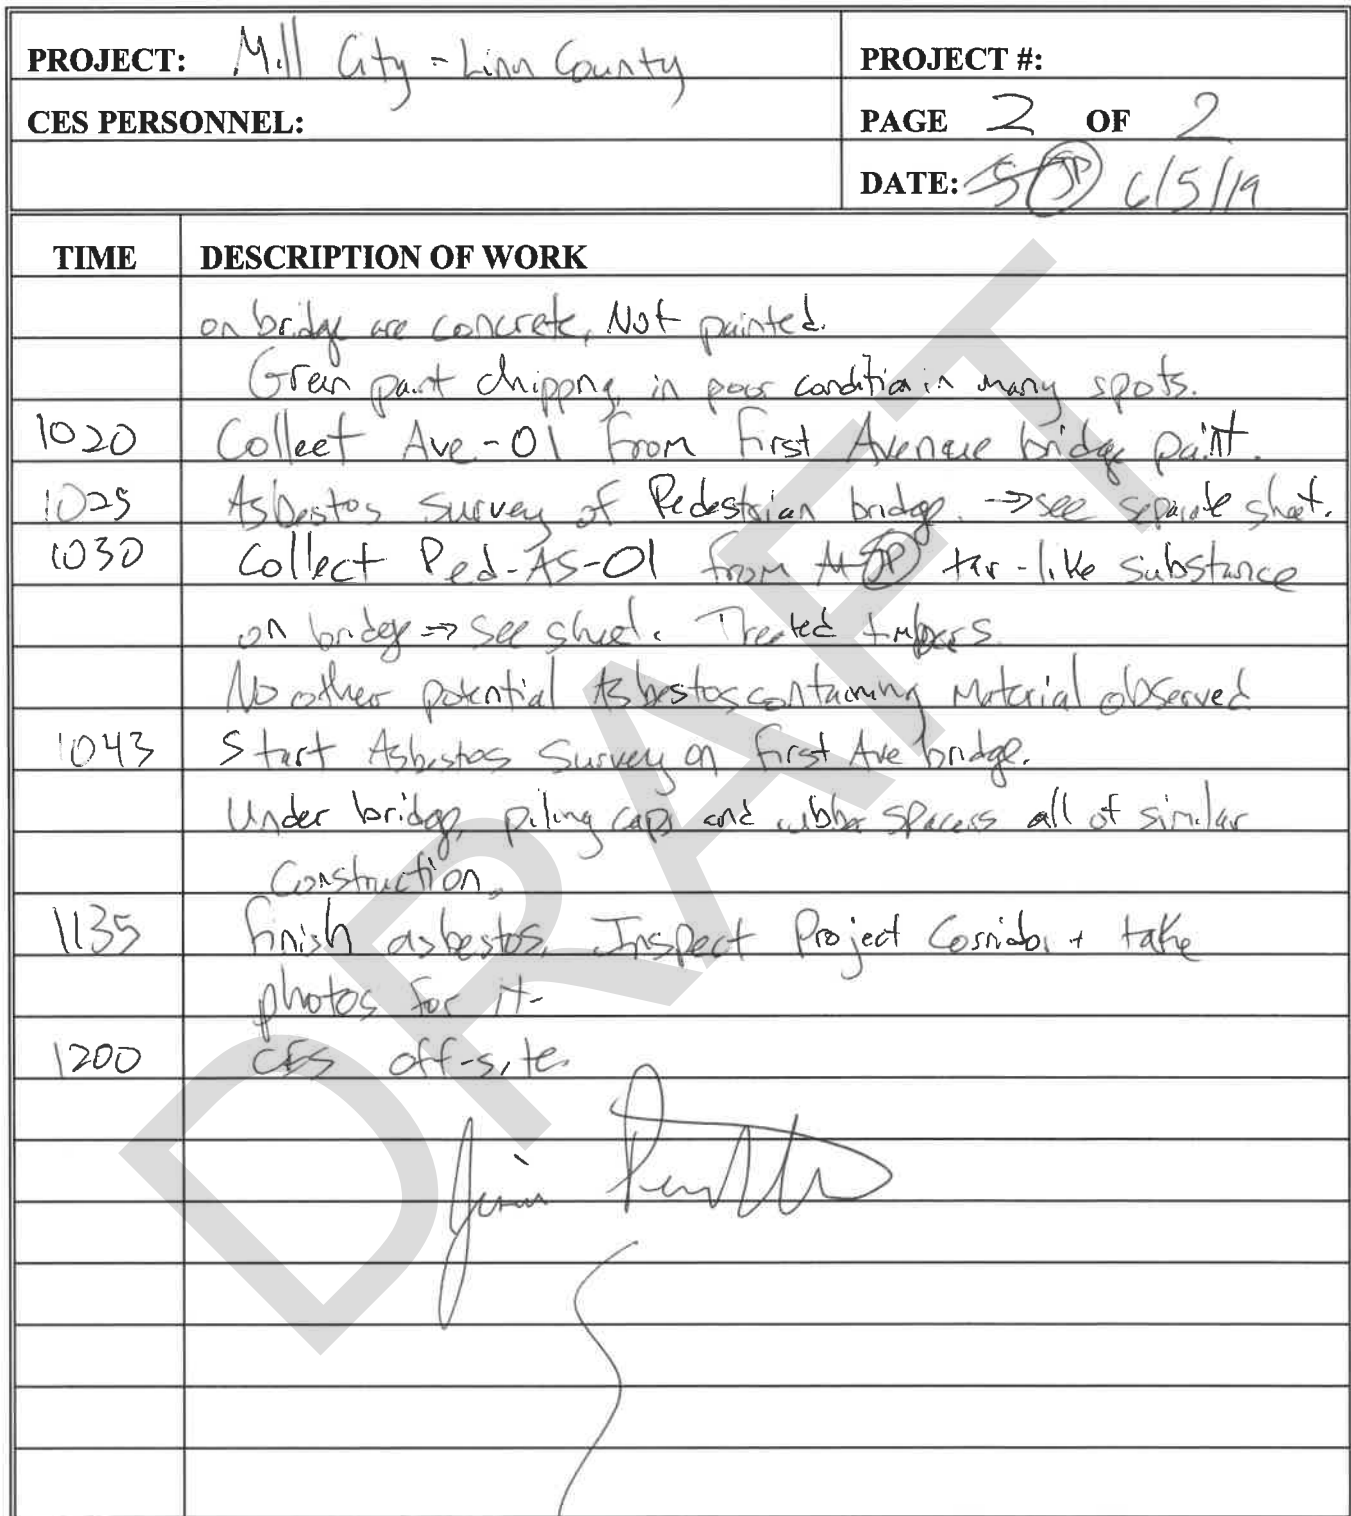 PROJECT: Mill City - Linn County PROJECT #:
CES PERSONNEL: PAGE 2 OF 2
DATE: 5 JP 6/5/19
TIME DESCRIPTION OF WORK
on bridge are concrete, Not painted.
Green paint chipping, in poor condition in many spots.
1020 Collect Ave-01 from First Avenue bridge paint.
1025 Asbestos Survey of Pedestrian bridge. → see separate sheet.
1030 Collect Ped-AS-01 from JP tar-like substance
on bridge → see sheet. Treated timbers.
No other potential Asbestos containing Material observed
1043 Start Asbestos Survey on First Ave bridge.
Under bridge, piling caps and rubber spacers all of similar
Construction.
1135 Finish asbestos. Inspect Project Corridor + take
photos for it-
1200 CES off-site.
DRAFT